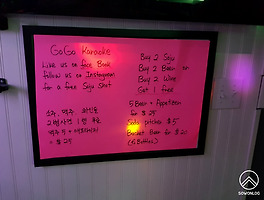 GoGo Karaoke
Like us on face Book
follow us on Instagram
for a free Soju Shot
Buy 2 Soju
Buy 2 Beer or
Buy 2 Wine
Get 1 free
5 Beer + Appetizer
for $ 25
Soju pitcher $ 5
Bucket Beer for $ 20
(6 Bottles)
소주, 맥주, 와인
2병 사면 1병
맥주 5 +
= $ 25
SOWONLOG